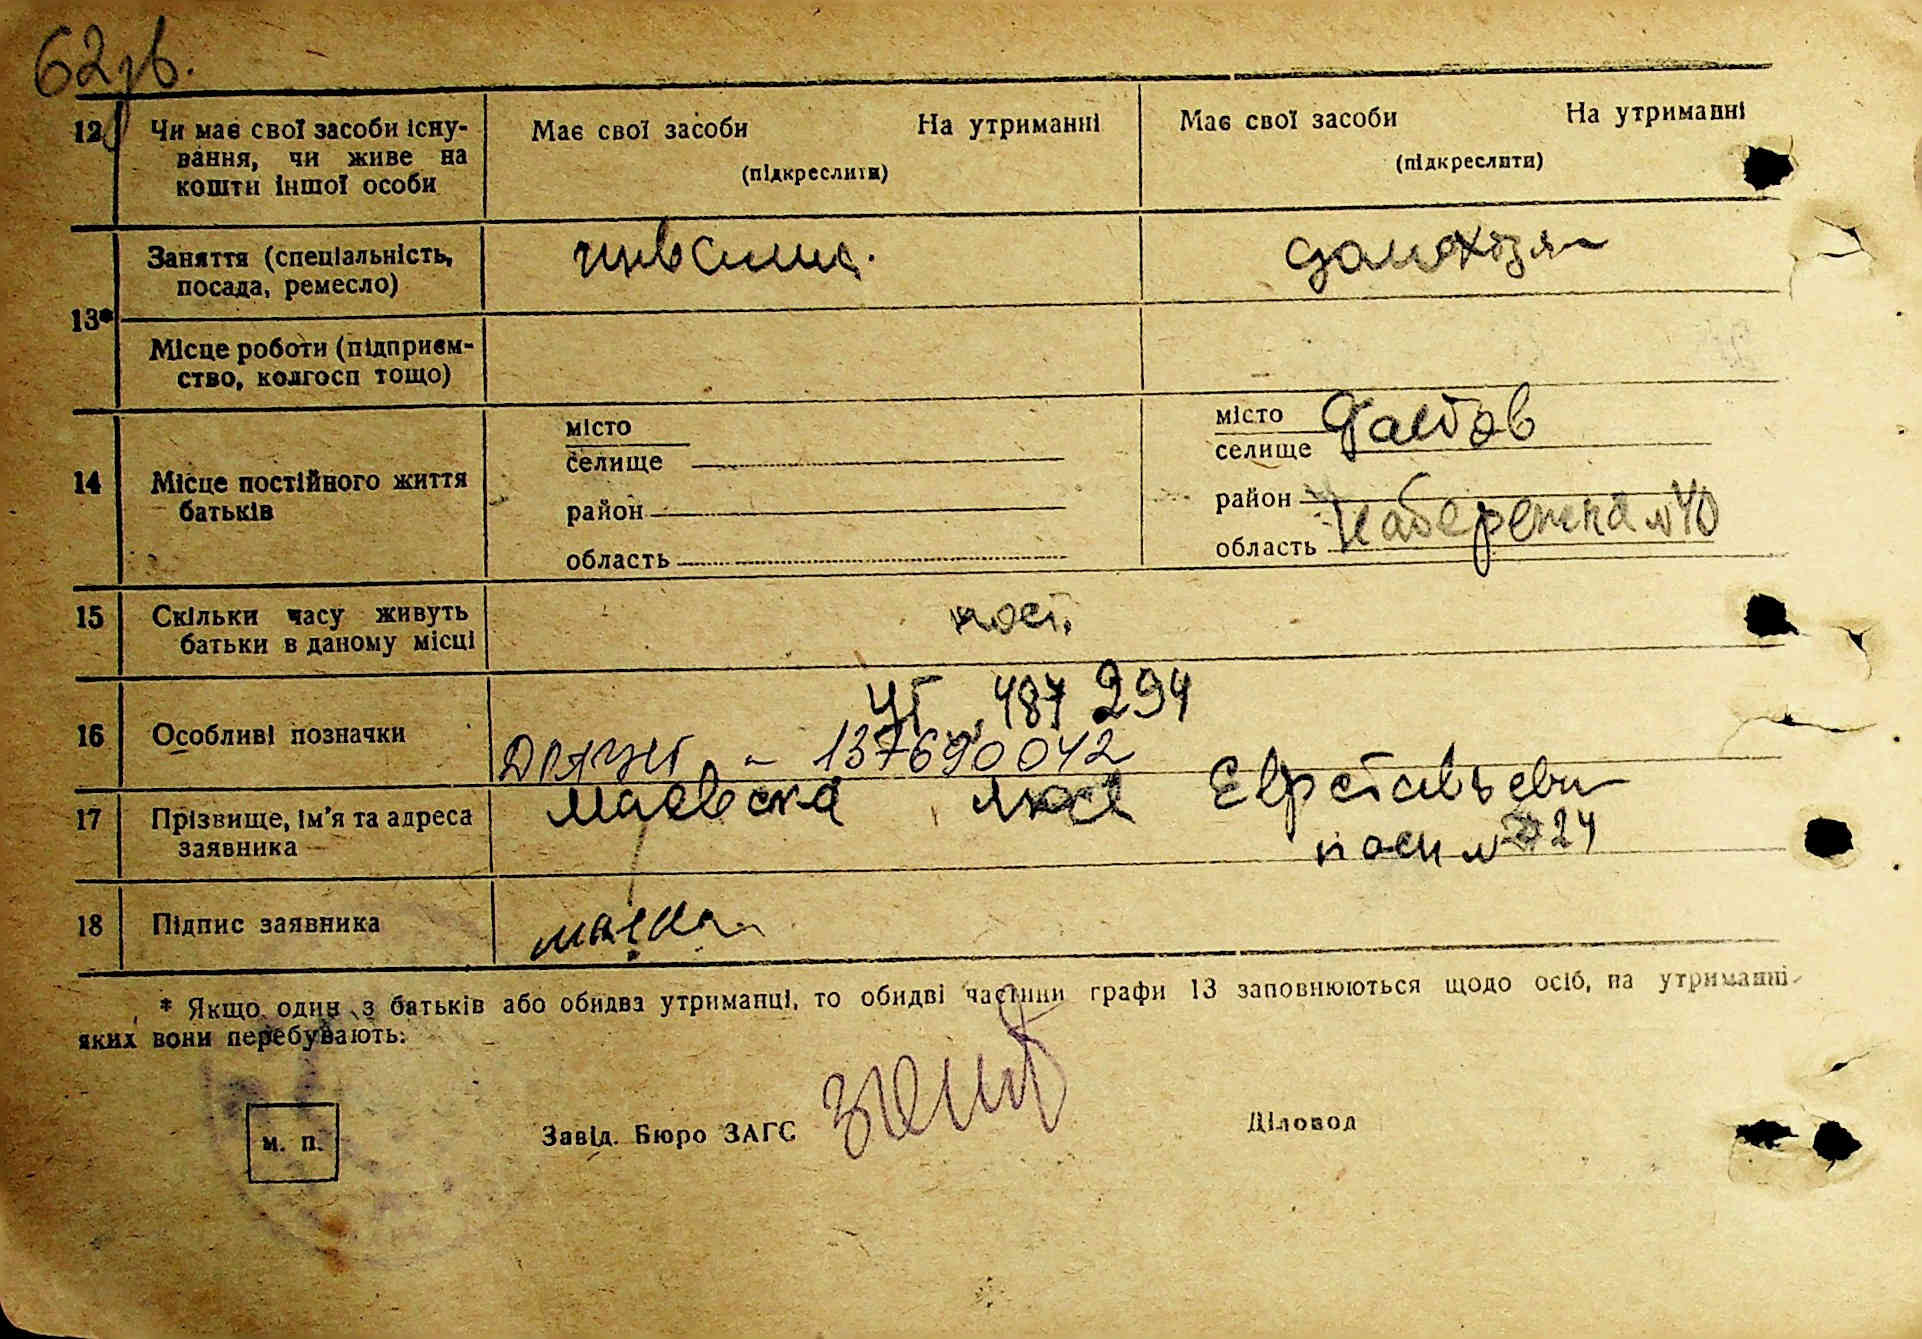 62зв.
12 Чи має свої засоби існу-
вання, чи живе на
кошти іншої особи
Має свої засоби На утриманні
(підкреслити)
Має свої засоби На утриманні
(підкреслити)
13*
Заняття (спеціальність,
посада, ремесло)
домохозя
Місце роботи (підприєм-
ство, колгосп тощо)
14 Місце постійного життя
батьків
місто
селище
район
область
місто Фастов
селище
район
Набережна № 40
область
15 Скільки часу живуть
батьки в даному місці
пост.
16 Особливі позначки
487 294
– 137690042
17 Прізвище, ім'я та адреса
заявника
Маевска Люся
№ 24
18 Підпис заявника
* Якщо один з батьків або обидва утриманці, то обидві частини графи 13 заповнюються щодо осіб, на утриманні
яких вони перебувають.
м. п.
Завід. Бюро ЗАГС
Діловод